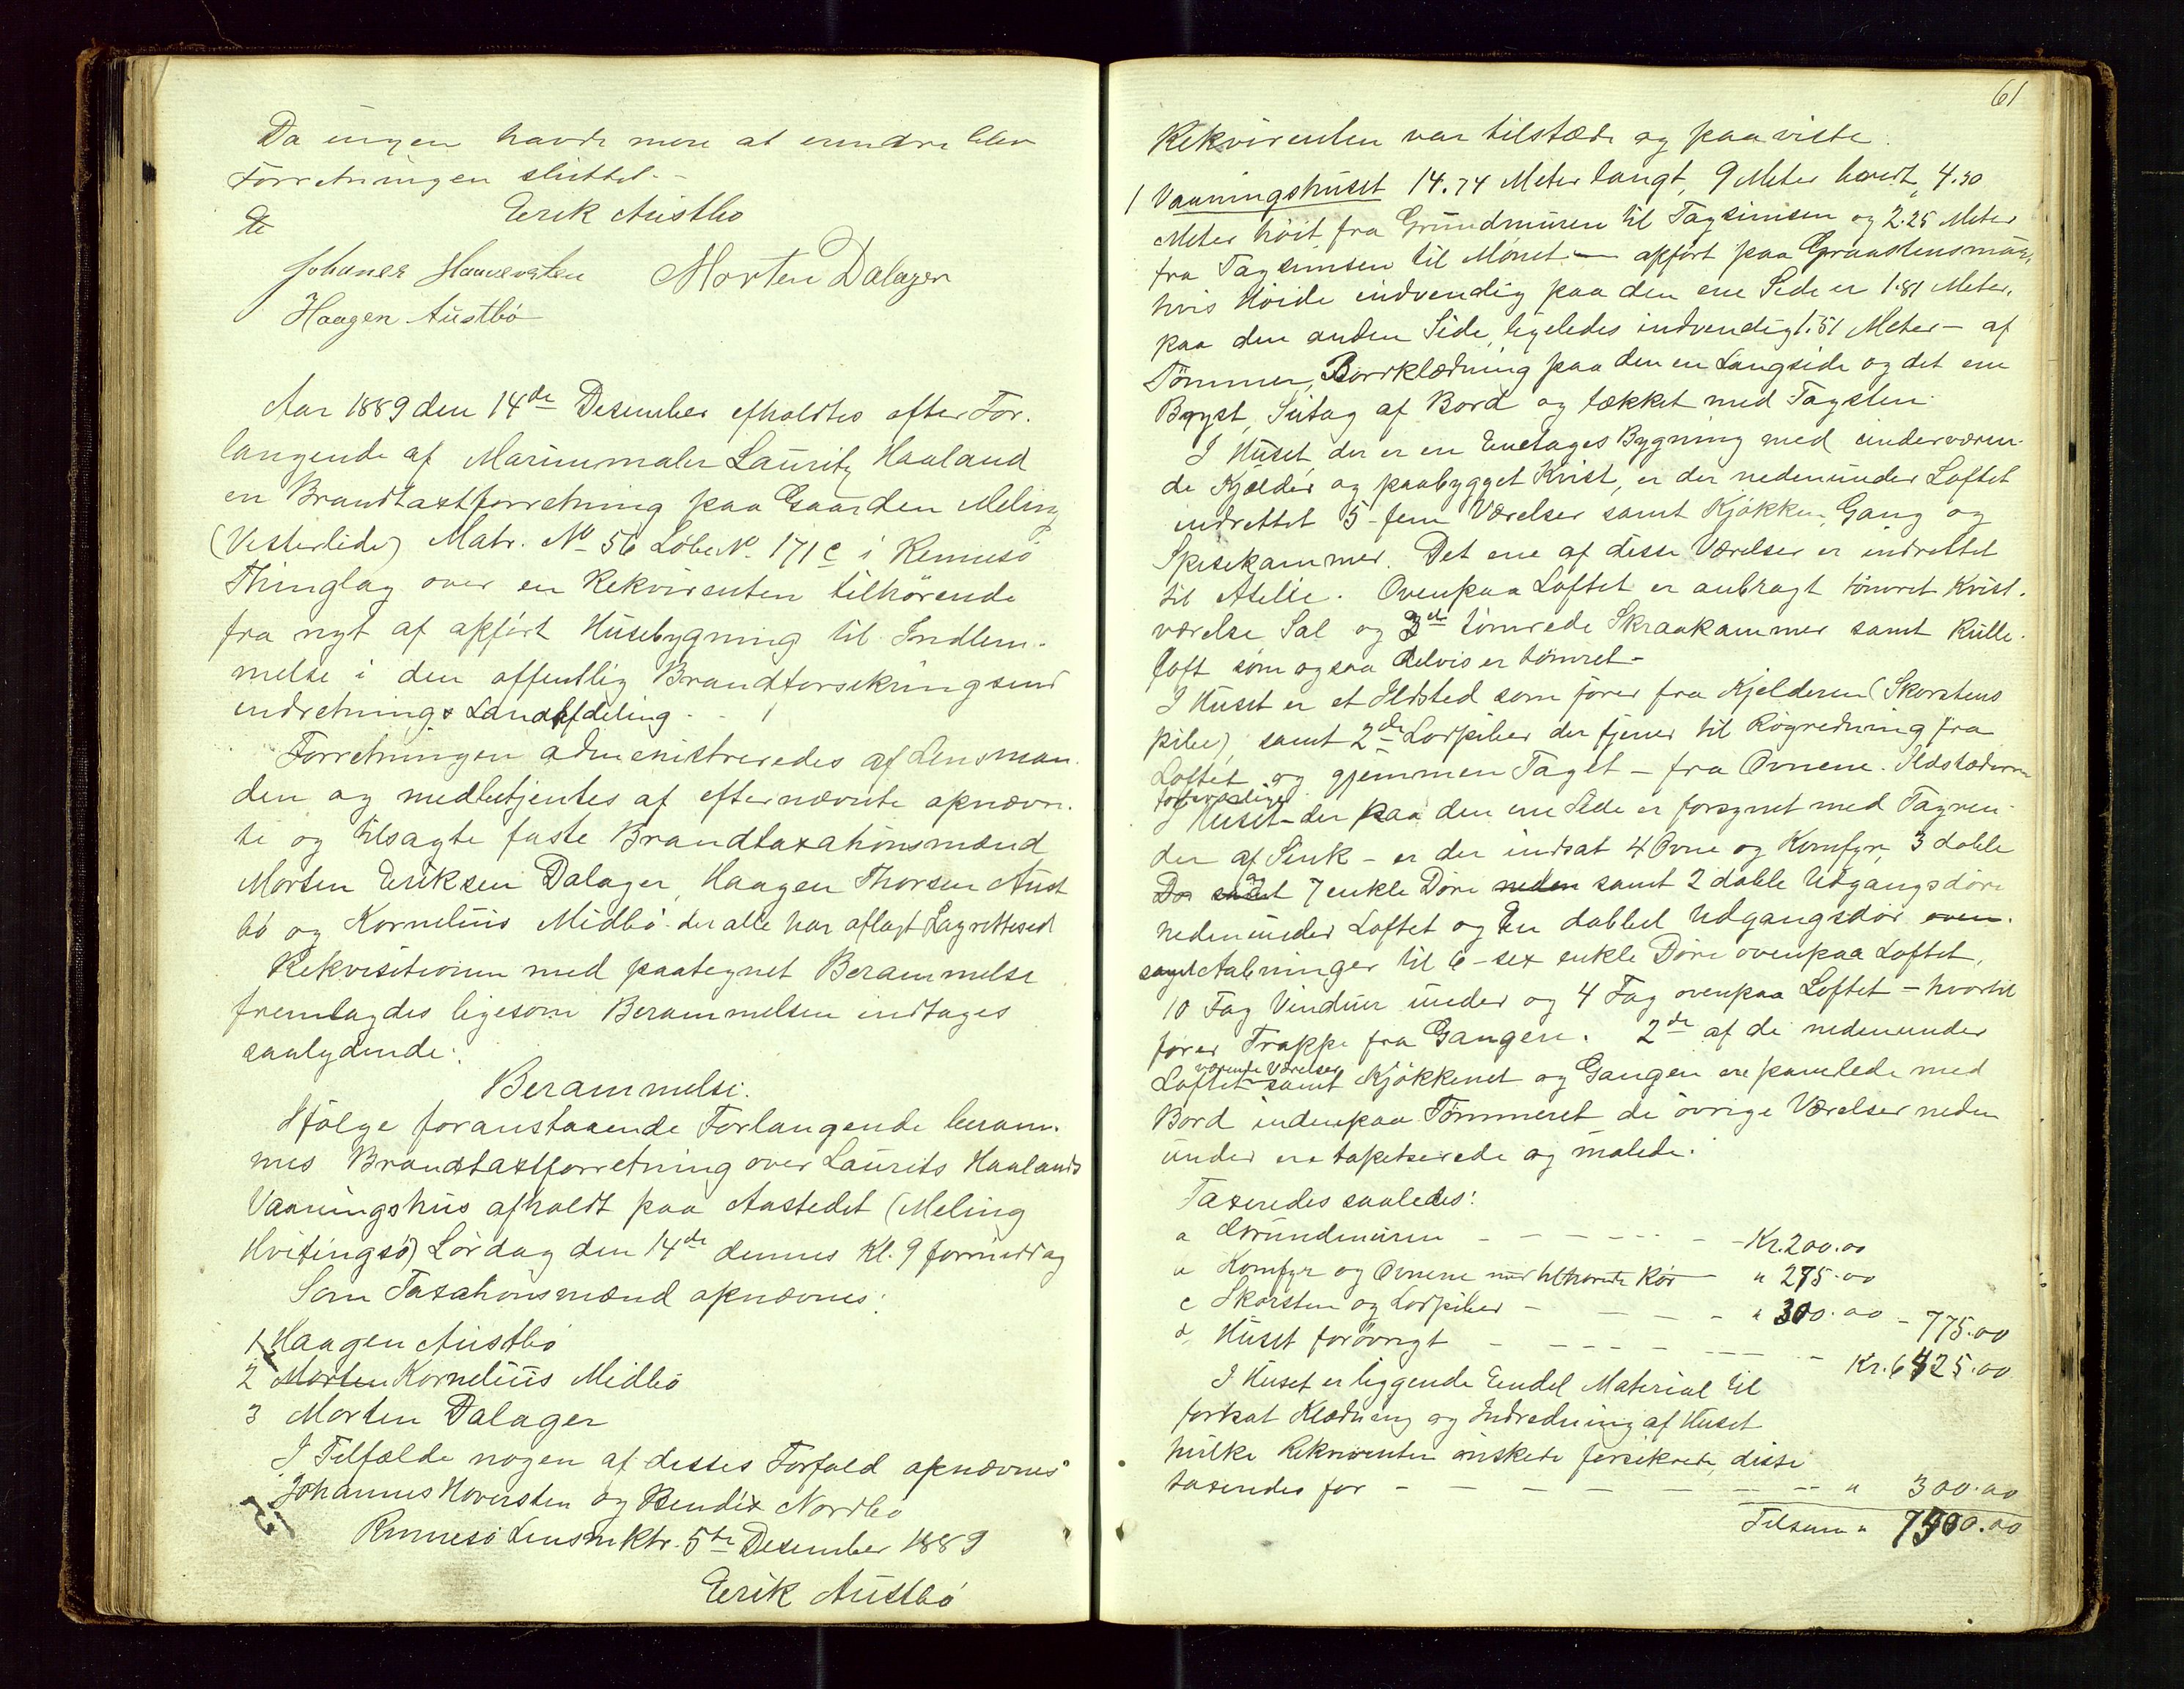 Da ingen havde mere at erindre blev
Forretningen sluttet. -
Erik Austbø
Johanes Haaversten Morten Dalager
Haagen Austbø
Aar 1889 den 14de Desember afholdtes efter For-
langende af Marinemaler Lauritz Haaland
en Brandtaxtforretning paa Gaarden Meling
(Vesterlide) Matr. No 56 Løbe N. 171 c i Rennesø
Thinglag over en Rekvirenten tilhørende
fra nyt af opført Husebygning til Indlem-
melse i den offentlig Brandforsikrings
indretnings Landafdeling.
Forretningen administreredes af Lensman-
den og medbetjentes af efternævnte opnævn-
te og tilsagte faste Brandtaxationsmænd
Morten Eriksen Dalager, Haagen Thorsen Aust
bø og Kornelius Midbø der alle har aflagt Lagrettesed
Rekvisitionen med paategnet Berammelse
fremlagdes ligesom Berammelsen indtages
saalydende:
Berammelse.
Ifølge foranstaaende Forlangende beram-
mes Brandtaxtforretning over Laurits Haalands
Vaaningshus afholdt paa Aastedet (Meling
Hvitingsø) Lørdag den 14de dennes Kl. 9 formiddag
Som Taxationsmænd opnævnes:
1 Haagen Austbø
2 Morten Kornelius Midbø
3 Morten Dalager
I Tilfælde nogen af disses Forfald opnævnes
Johannes Hoversten og Bendix Nordbø
Rennesø Lensmktr. 5te Desember 1889
Erik Austbø
61
Rekvirenten var tilstæde og paaviste:
1 Vaaningshuset 14.74 Meter langt, 9 Meter bredt, 4.30
Meter høit fra Grundmuren til Tagsimsen og 2.25 Meter
fra Tagsimsen til Mønet - opført paa Graastensmur,
hvis Høide indvendig paa den ene Side er 1.81 Meter,
paa den anden Side, ligeledes indvendig 1.51 Meter - af
Tømmer, Bordklædning paa den en Langside og det ene
Bryst, Sutag af Bord og tækket med Tagsten.
I Huset der er en Enetages Bygning med underværen-
de Kjælder og paabygget Kvist, er der nedenunder Loftet
indrettet 5-fem Værelser samt Kjøkken, Gang og
Spisekammer. Det ene af disse Værelser er indrettet
til Atelie. Ovenpaa Loftet er anbragt tømret Kvist-
værelse, Sal og 3de tømrede Skraakammer samt Rulle-
loft som ogsaa delvis er tømret -
I Huset er et Ildsted som fører fra Kjelderen (Skorstens
pibe), samt 2de Lodpiber der tjener til Røgredning fra
Loftet og gjemmen Taget - fra Ovnene. Ildstæderne
forsvarlige
I Huset - der paa den ene Side er forsynet med Tagren-
der af Sink - er der indsat 4 Ovne og Komfyr, 3 doble
Dø samt og 7 enkle Døre neden samt 2 doble Udgangsdøre
nedenunder Loftet og En dobbel Udgangsdør oven-
samt Aabninger til 6-sex enkle Døre ovenpaa Loftet,
10 Fag Vinduer under og 4 Fag ovenpaa Loftet - hvortil
fører Trappe fra Gangen. 2de af de nedenunder
Loftet værende Værelser samt Kjøkkenet og Gangen ere panelede med
Bord indenpaa Tømmeret de øvrige Værelser neden
under ere tapetserede og malede.
Taxeredes saaledes:
a Grundmuren - - - - - - Kr. 200.00
b Komfyr og Ovnene med tilhørende Rør - " 275.00
c Skorsten og Lodpiber - - - - " 300.00 - 775.00
d Huset forøvrigt - - - - - - - Kr. 6425.00
I Huset er liggende Endel Material til
fortsat Klædning og Indredning af Huset
hvilke Rekvirenten ønskede forsikrede, disse
taxeredes for - - - - - - - " 300.00
Tilsam " 7500.00